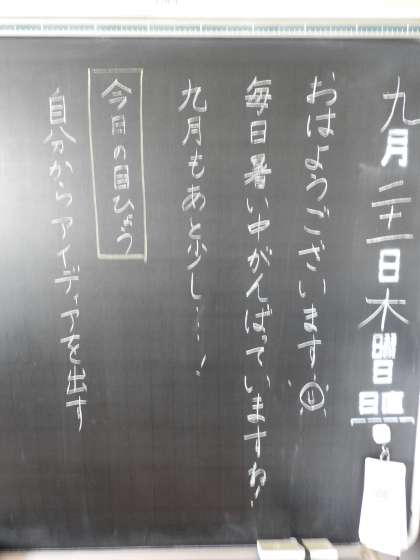 九月二十二日木曜日
日直
おはようございます
毎日暑い中がんばっていますね！
九月もあと少し…！
今日の目ひょう
自分からアイディアを出す